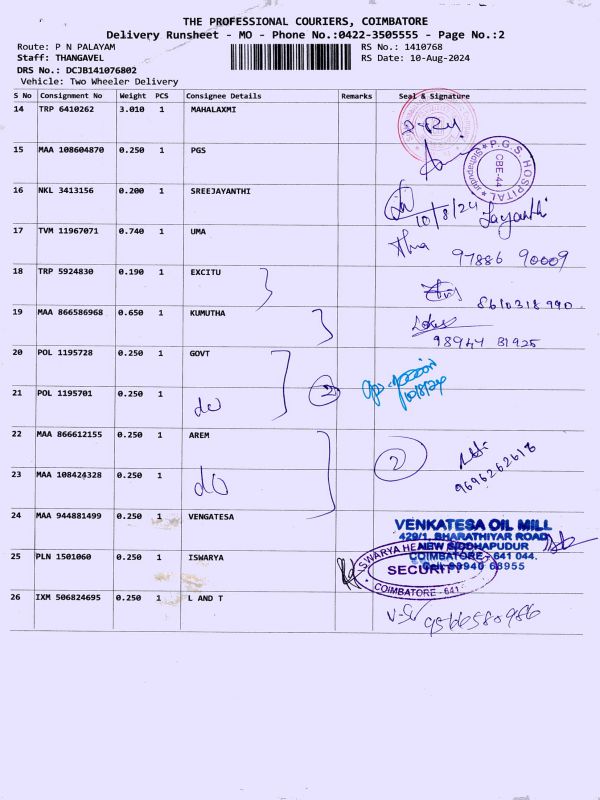 THE PROFESSIONAL COURIERS, COIMBATORE
Delivery Runsheet - MO - Phone No.:0422-3505555 - Page No.:2
Route: P N PALAYAM RS No.: 1410768
Staff: THANGAVEL RS Date: 10-Aug-2024
DRS No.: DCJB141076802
Vehicle: Two Wheeler Delivery
S No Consignment No Weight PCS Consignee Details Remarks Seal & Signature
14 TRP 6410262 3.010 1 MAHALAXMI
15 MAA 108604870 0.250 1 PGS
P.G.S. HOSPITAL
CBE-44
16 NKL 3413156 0.200 1 SREEJAYANTHI
10/8/24 Jayanthi
17 TVM 11967071 0.740 1 UMA
97886 90009
18 TRP 5924830 0.190 1 EXCITU
8610318 990
19 MAA 866586968 0.650 1 KUMUTHA
98944 81925
20 POL 1195728 0.250 1 GOVT
21 POL 1195701 0.250 1 do 2
10/8/24
22 MAA 866612155 0.250 1 AREM
2
23 MAA 108424328 0.250 1 do
9696262618
24 MAA 944881499 0.250 1 VENGATESA
VENKATESA OIL MILL
429/1, BHARATHIYAR ROAD
NEW SIDDHAPUDUR
COIMBATORE - 641 044.
25 PLN 1501060 0.250 1 ISWARYA
SECURITY
COIMBATORE - 641
26 IXM 506824695 0.250 1 L AND T
9566580986